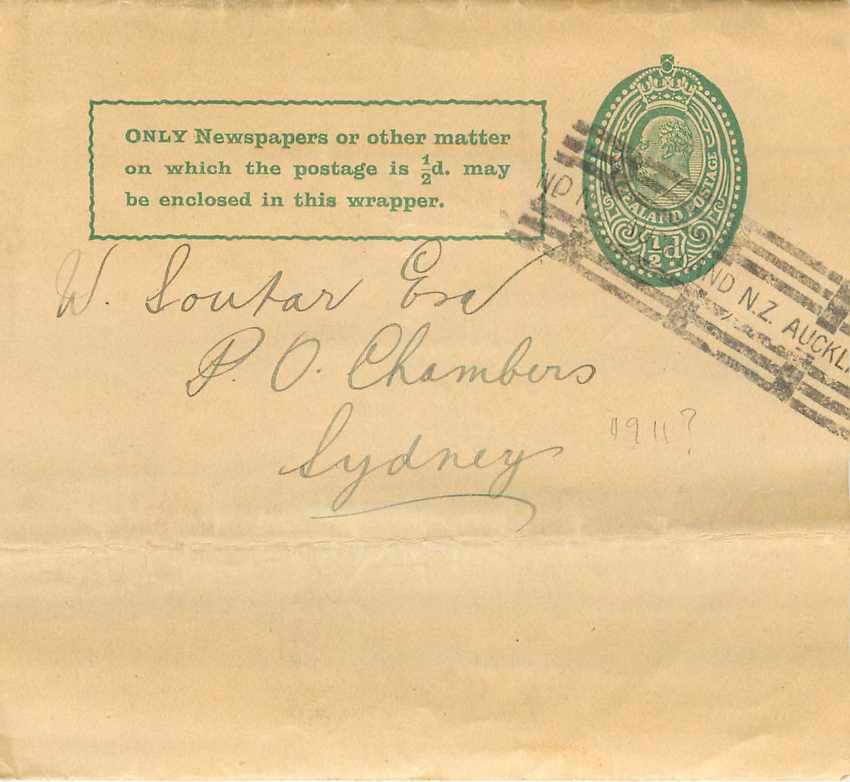 ONLY Newspapers or other matter
on which the postage is ½d. may
be enclosed in this wrapper.
ZEALAND POSTAGE
½d
ND N.Z. AUCKLA
W. Soutar Esq
P. O. Chambers
Sydney
1911?